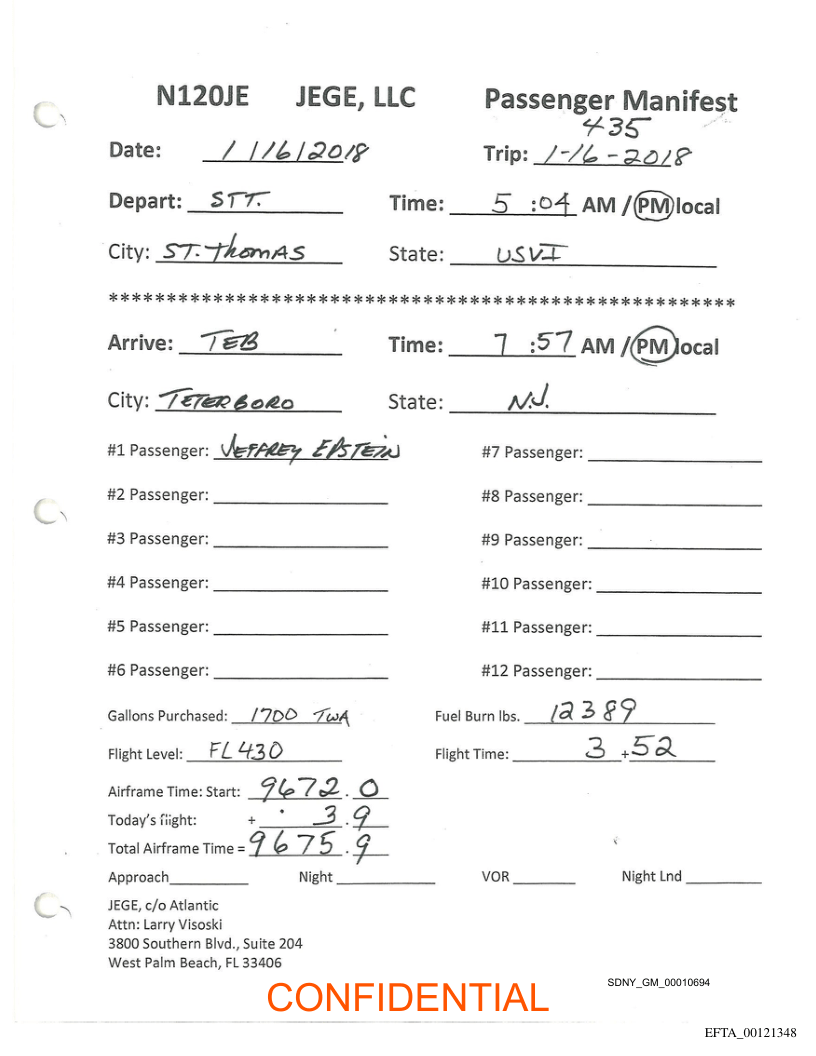 N120JE JEGE, LLC Passenger Manifest
435
Date: 1/16/2018 Trip: 1-16-2018
Depart: STT. Time: 5:04 AM / PM local
City: ST. Thomas State: USVI
******************************************************
Arrive: TEB Time: 7:57 AM / PM local
City: TETERBORO State: N.J.
#1 Passenger: JEFFREY EPSTEIN #7 Passenger:
#2 Passenger: #8 Passenger:
#3 Passenger: #9 Passenger:
#4 Passenger: #10 Passenger:
#5 Passenger: #11 Passenger:
#6 Passenger: #12 Passenger:
Gallons Purchased: 1700 TWA Fuel Burn lbs. 12389
Flight Level: FL430 Flight Time: 3 + 52
Airframe Time: Start: 9672.0
Today's flight: + 3.9
Total Airframe Time = 9675.9
Approach Night VOR Night Lnd
JEGE, c/o Atlantic
Attn: Larry Visoski
3800 Southern Blvd., Suite 204
West Palm Beach, FL 33406
SDNY_GM_00010694
CONFIDENTIAL
EFTA_00121348